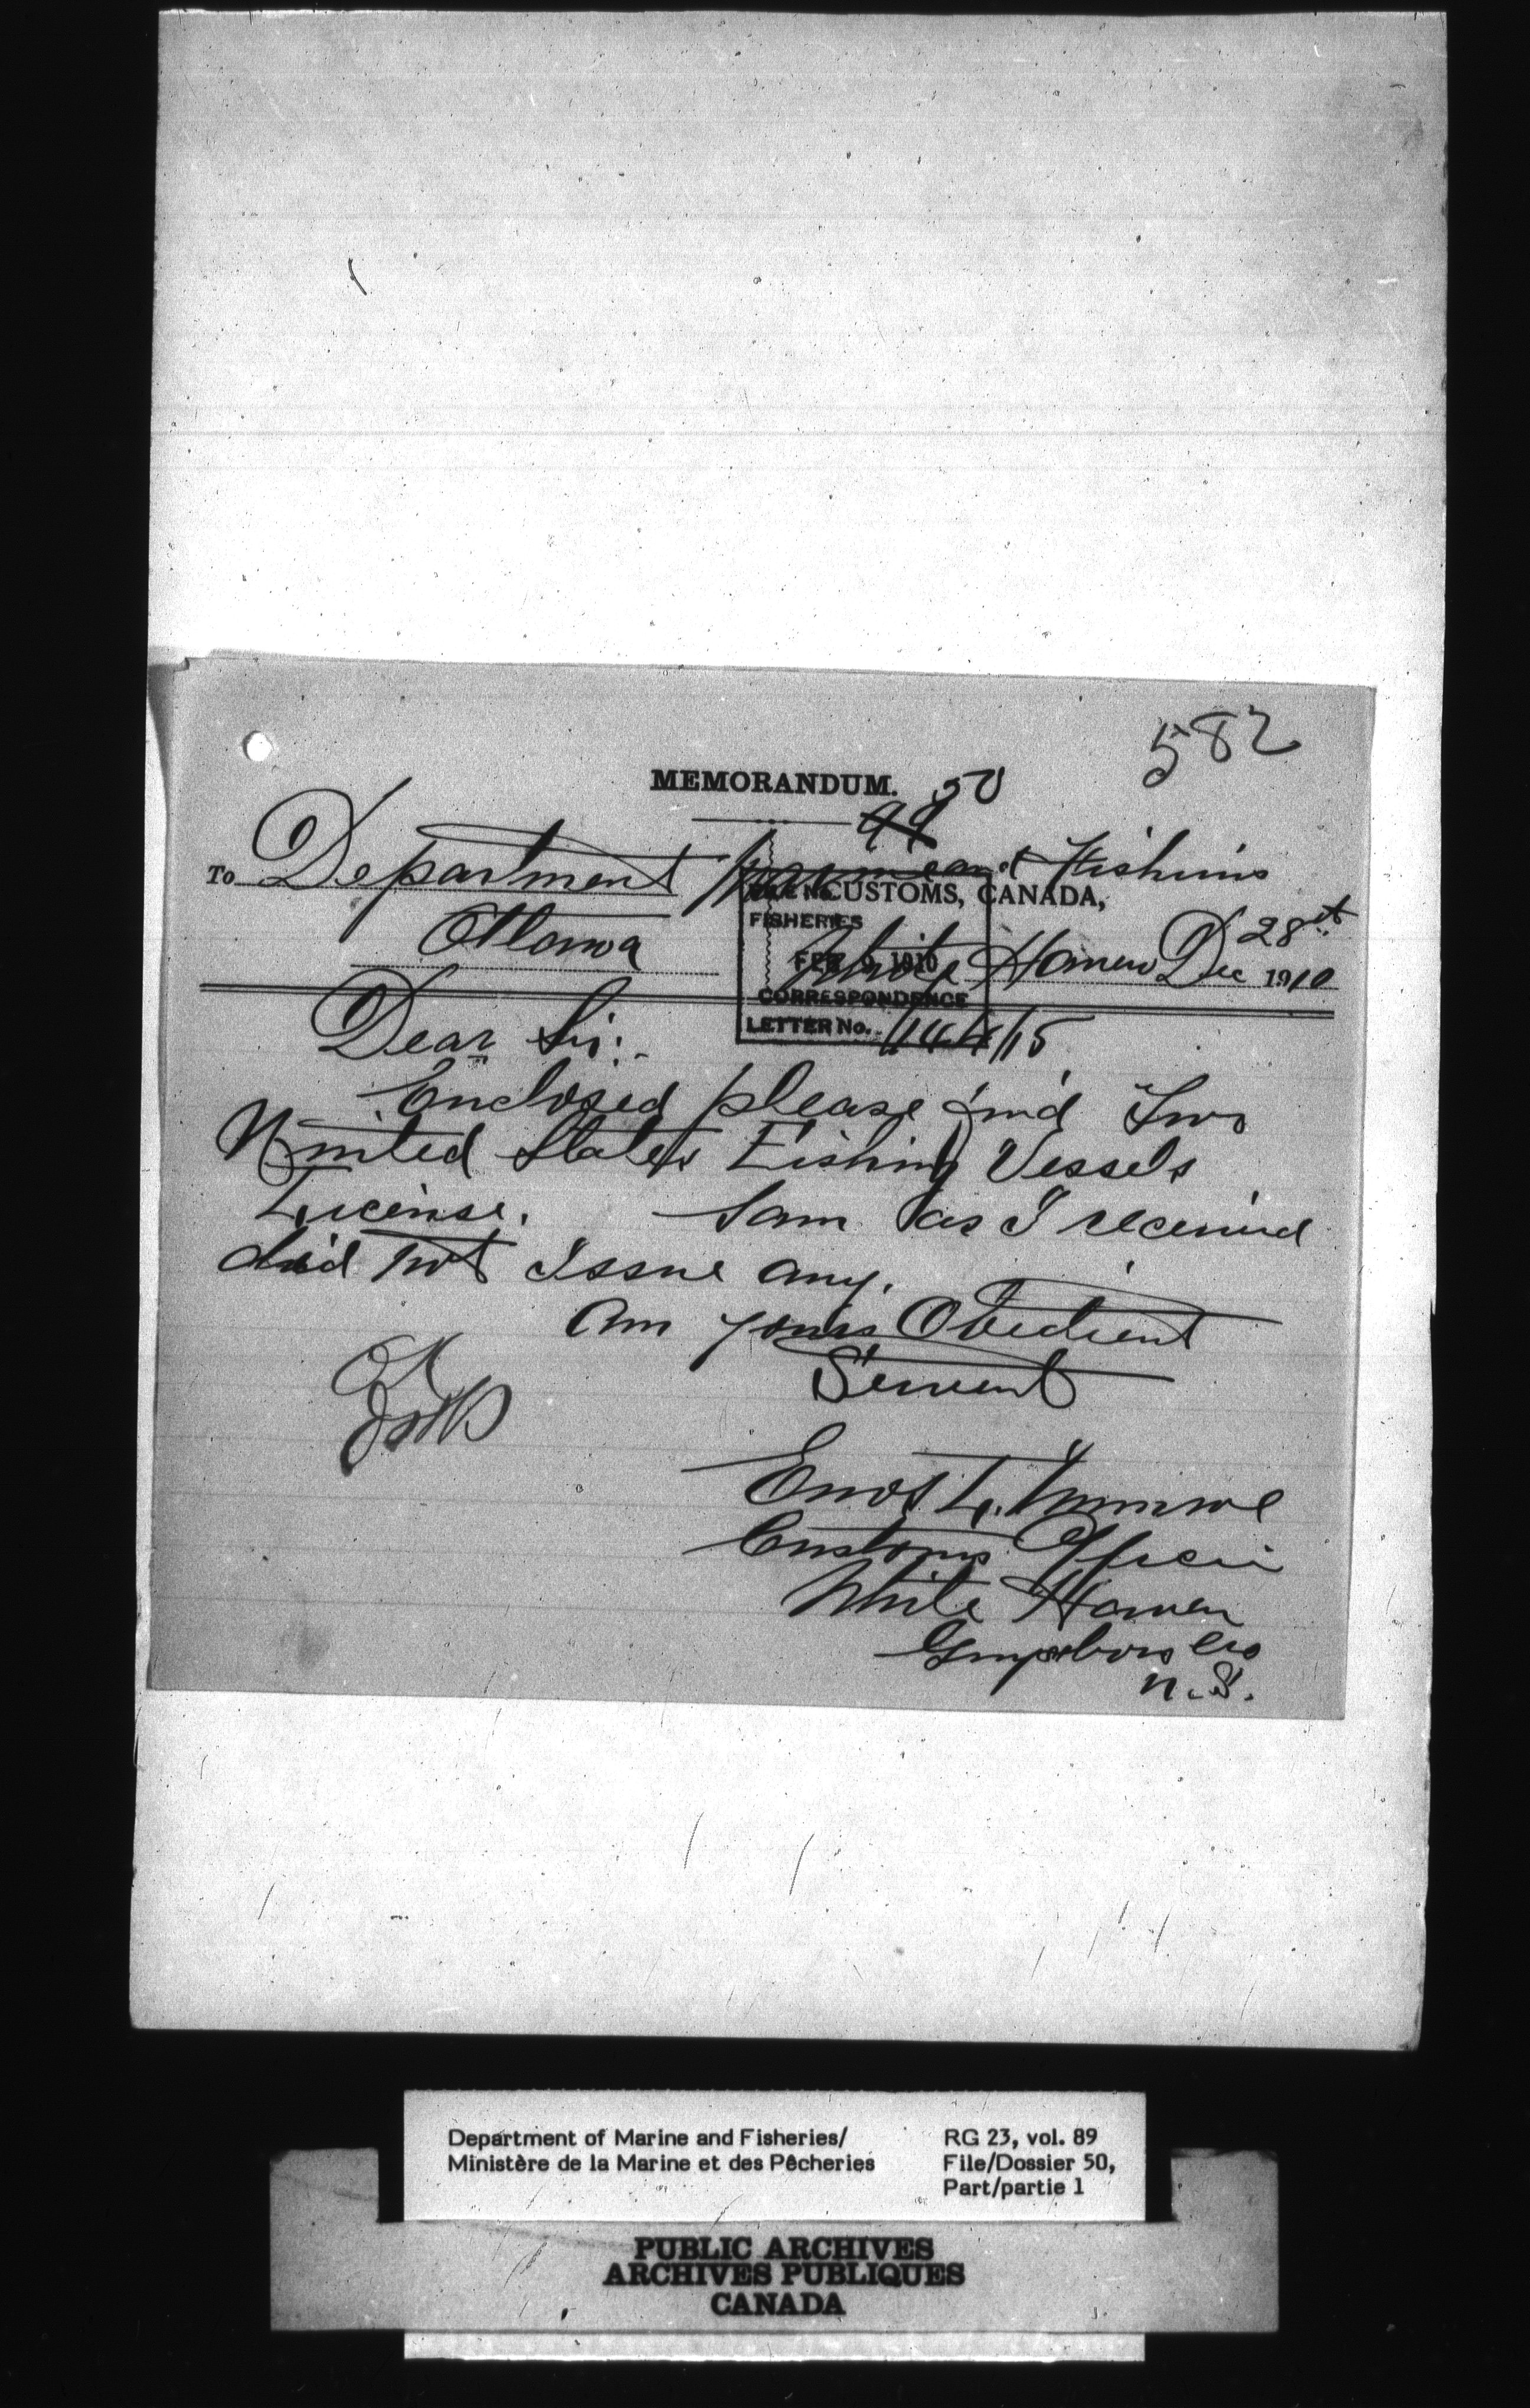 582
MEMORANDUM. 50
44
To Department Marine and Fisheries
CUSTOMS, CANADA,
FISHERIES
Ottawa
White Haven Dec 28st 1910
FEB 9 1910
CORRESPONDENCE
LETTER No.
Dear Sir:-
Enclosed please find Two
United States Fishing Vessels
License. Sam as I received
did not Issue any.
Am yours Obedient
Servent
OK
Enos L. Munroe
Customs Officer
White Haven
Guysboro Co
N.S.
Department of Marine and Fisheries/
Ministère de la Marine et des Pêcheries
RG 23, vol. 89
File/Dossier 50,
Part/partie 1
PUBLIC ARCHIVES
ARCHIVES PUBLIQUES
CANADA